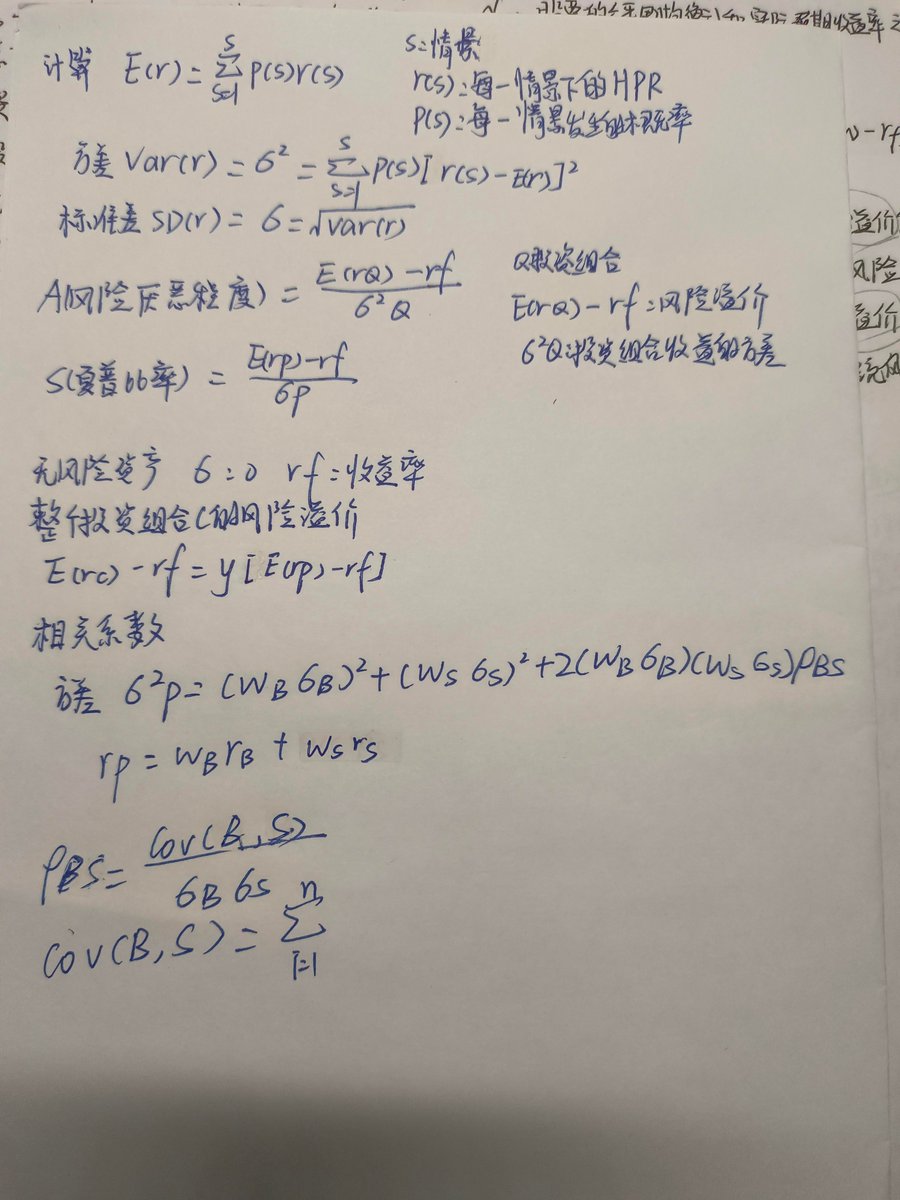 计算 E(r) = ∑_{S=1}^{S} P(s)r(s)
S=情景
r(s):每一情景下的HPR
P(s):每一情景发生的概率
方差 Var(r) = б² = ∑_{S=1}^{S} P(s)[r(s) - E(r)]²
标准差 SD(r) = б = √var(r)
A(风险厌恶程度) = (E(rQ) - rf)/(б²Q)
Q投资组合
E(rQ) - rf:风险溢价
б²Q:投资组合收益的方差
S(夏普比率) = (E(rp) - rf)/(бp)
无风险资产 б:0 rf=收益率
整个投资组合C的风险溢价
E(rc) - rf = y[E(rp) - rf]
相关系数
方差 б²p = (WB бB)² + (WS бS)² + 2(WB бB)(WS бS)ρBS
rp = WB rB + WS rS
ρBS = Cov(B,S)/(бB бS)
Cov(B,S) = ∑_{i=1}^{n}